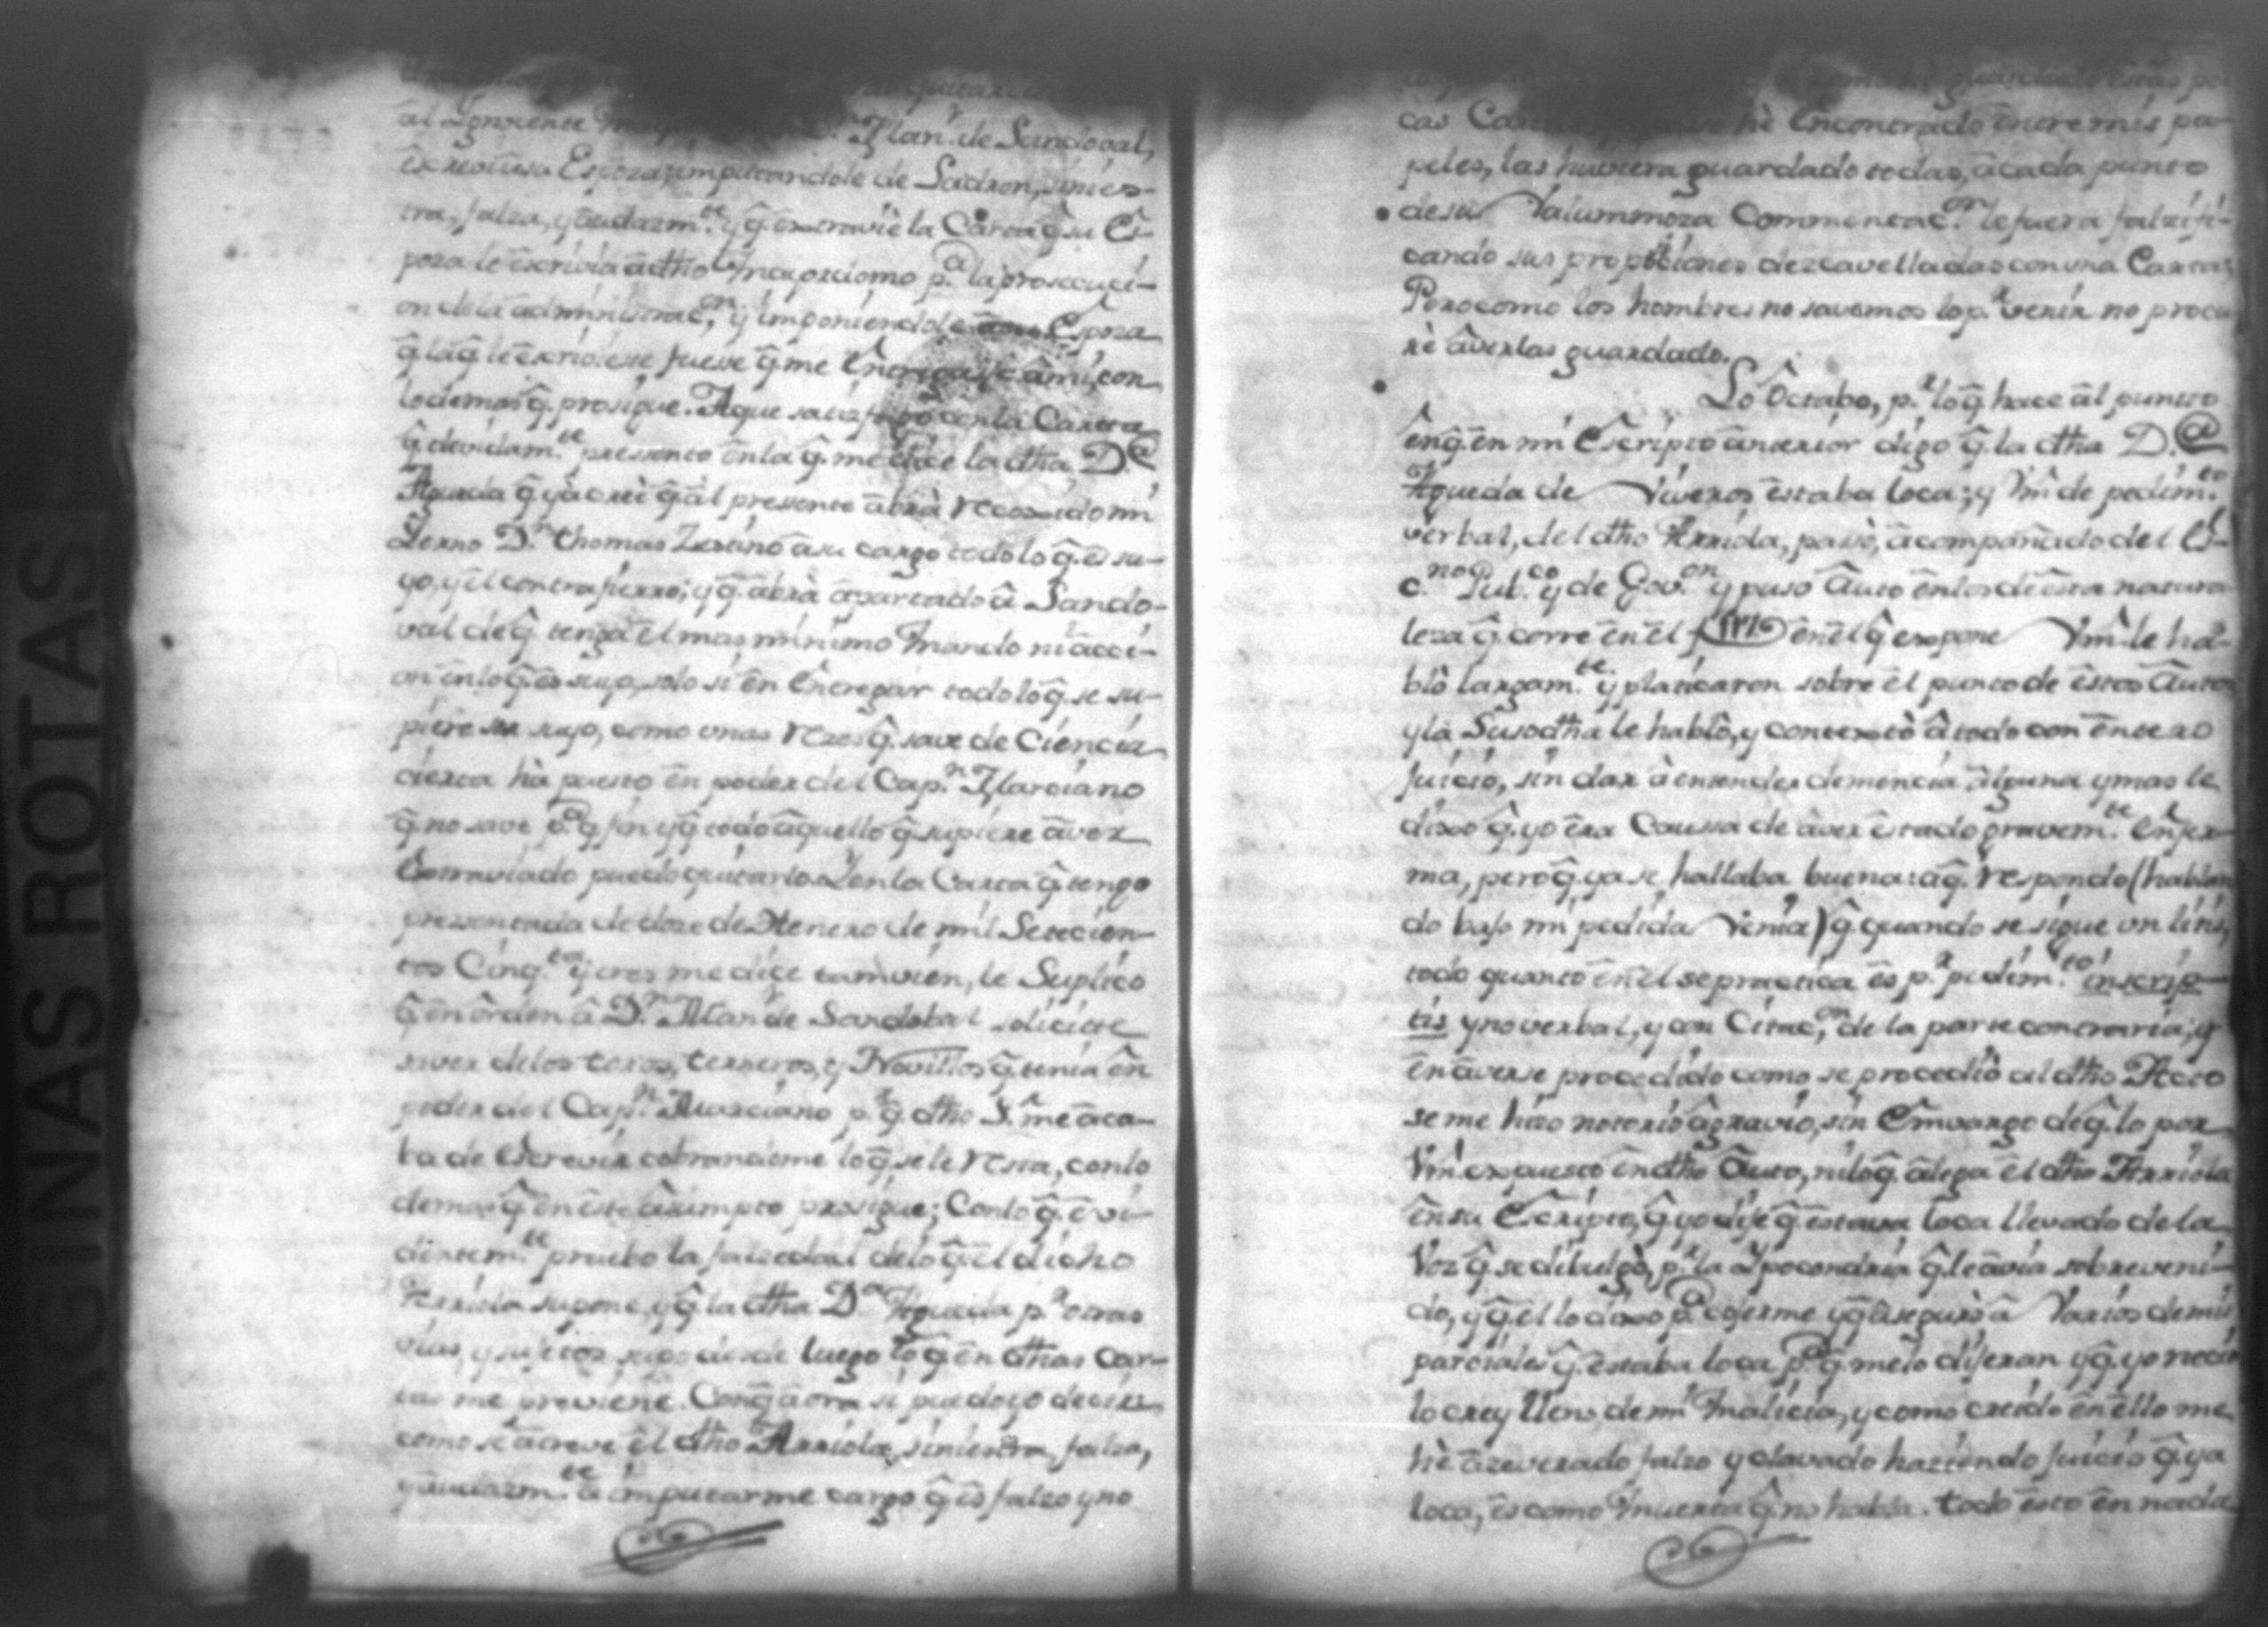 al Ygnorente D.ⁿ Man.ˡ de Sandoval,
Espoza, imputandole de Ladron, sinies-
tra, falza, y audazm.ᵗᵉ y q̂. extravie la Carta q̂ su Es-
poza le escrivia a dho Mayordomo p.ᵃ la prosecuci-
on de la administrac.ᵒⁿ, y imponiendole Espoza
q̂ la q̂ le escriviesse fuese q̂. me Entregase â mi, con
lo demas q̂. prosigue. A que satisfago con la Carta
q̂ devidam.ᵗᵉ pressento ên la q̂. me dice la dha D.ᵃ
Agueda q̂ ya creè q̂ âl presente âbrà recoxido mi
Yerno D.ⁿ thomas Lesano â su cargo todo lo q̂. ês su-
yo, y êl contrafierro; y q̂. abrà âpartado â Sando-
val de q̂. tenga êl mas minimo mando ni âcci-
on ên lo q̂. ês suyo, solo si ên Entregar todo lo q̂. se su-
piere ser suyo, como unas rezes q̂. save de Ciencia
cierta hà puesto ên poder del Cap.ⁿ Marciano
q̂. no save p.ᵃ q̂ fin y q̂ todo âquello q̂. supiere âver
Extraviado puedo quitarlo. Y en la Carta q̂ tengo
presentada de doze de Henero de mil Setecien-
tos Cinq.ᵗᵃ y tres me dice tamvien, le Suplico
q̂ ên ôrden â D.ⁿ Man.ˡ de Sandobal solicite
saver de los toros, terneros, y Novillos q̂. tenia ên
poder del Cap.ⁿ Marciano p.ʳ q̂. dho S.ʳ me âca-
ba de Escrevir cobrandome lo q̂. se le resta, con lo
demas q̂ ên êste âsumpto prosigue; Con lo q̂. êvi-
dentem.ᵗᵉ pruebo la falcedad de lo q̂. êl dicho
Arriola supone, y q̂ la dha D.ᵃ Agueda p.ʳ otras
vias, y sujetos supo desde luego lo q̂. ên dhas Car-
tas me previene. Con q̂ âora si puedo yo decir
como se âtreve êl dho Arriola, siniestra, falza,
y audazm.ᵗᵉ â imputarme cargo q̂ ês falzo y no
guardado êstas po-
cas Cartas hè Encontrado êntre mis pa-
peles, las huviera guardado todas, â cada punto
de su Valumnoza Commentac.ᵒⁿ le fuera falzifi-
cando sus propociciones dezcavelladas con una Carta;
Pero como los hombres no savemos lo p.ʳ venir no procu-
rè âverlas guardado.
Lo Octabo, p.ʳ lo q̂. hace âl punto
ên q̂. ên mi Escripto ânterior digo q̂. la dha D.ᵃ
Agueda de Viveros êstaba loca; y Vm̂ de pedim.ᵗᵒ
verbal, del dho Arriola, pasò, âcompañado del Es-
c.ⁿᵒ Pub.ᶜᵒ y de Gov.ᵒⁿ y puso Auto ên los de êsta natura-
leza q̂ corre ên êl f. ên êl q̂ expone Vm̂ le ha-
blò largam.ᵗᵉ y platicaron sobre êl punto de êstos Autos
y la Susodha le hablò, y contextò â todo con êntero
Juicio, sin dar â entender demencia âlguna y mas le
dixo q̂. yo êra Caussa de âver êstado gravem.ᵗᵉ Enfer-
ma, pero q̂. ya se hallaba buena: â q̂. respondo (hablan-
do bajo mi pedida Venia) q̂. quando se sigue un litis,
todo quanto ên êl se practica ês p.ʳ pedim.ᵗᵒ inscrip-
tis y no verbal, y con Citac.ᵒⁿ de la parte contraria; y
ên âverse procedido como se procediò al dho Acto
se me hizo notorio âgravio, sin Embargo de q̂. lo por
Vm̂ expuesto ên dho Auto, ni lo q̂. âlega êl dho Arriola
ên su Escripto, q̂. yo dije q̂. êstava loca llevado de la
Voz q̂. se dibulgò, p.ʳ la Ypocondria q̂. le âvia sobreveni-
do, y q̂. êl lo dixo p.ᵃ cojerme y q̂ âsegurò â Varios de mis
parciales q̂. êstaba loca p.ᵃ q̂. me lo dijeran y q̂. yo necio
lo crey lleno de mi malicia, y como creido ên êllo me
hè âzeverado falzo y clavado haziendo Juicio q̂. ya
loca, ês como muerta q̂. no habla. todo êsto ên nada
PAGINAS ROTAS